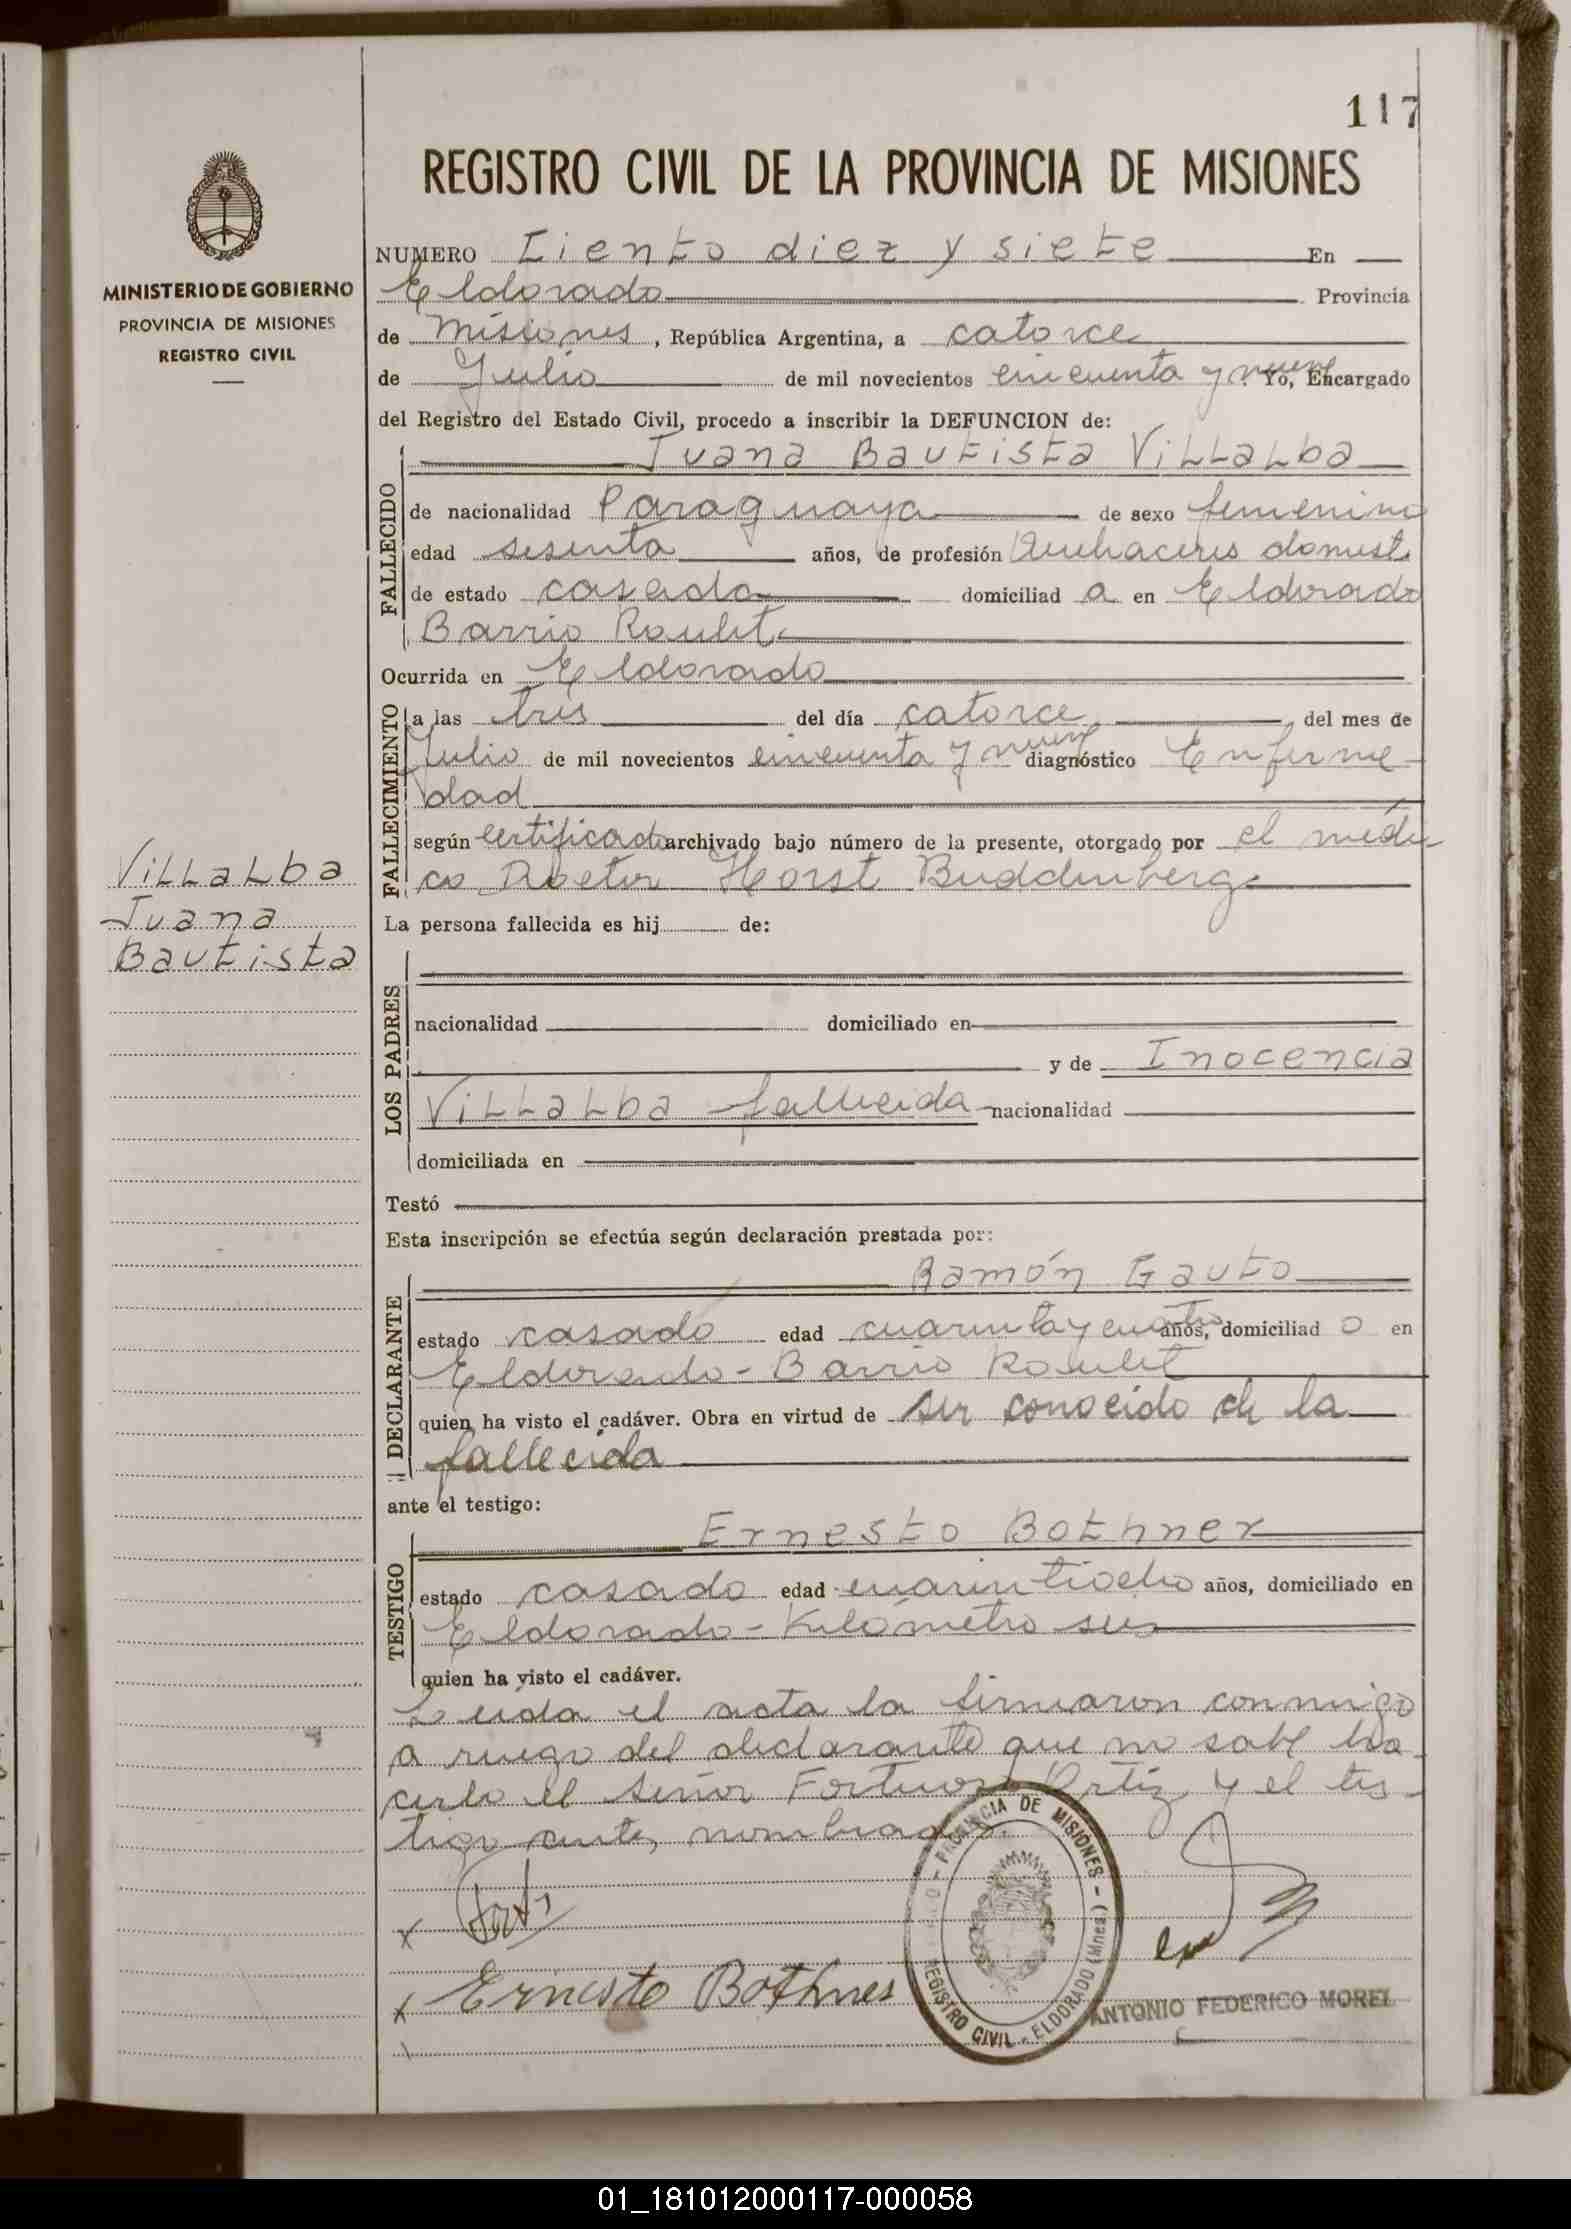 117
REGISTRO CIVIL DE LA PROVINCIA DE MISIONES
MINISTERIO DE GOBIERNO
PROVINCIA DE MISIONES
REGISTRO CIVIL
NUMERO Ciento diez y siete En
Eldorado Provincia
de Misiones, República Argentina, a catorce
de Julio de mil novecientos cincuenta y nueve Yo, Encargado
del Registro del Estado Civil, procedo a inscribir la DEFUNCION de:
Juana Bautista Villalba
FALLECIDO
de nacionalidad Paraguaya de sexo femenino
edad sesenta años, de profesión Quehaceres domest.
de estado casada domiciliad a en Eldorado
Barrio Roulet
Ocurrida en Eldorado
FALLECIMIENTO
a las tres del día catorce del mes de
Julio de mil novecientos cincuenta y nueve diagnóstico Enferme-
dad
según certificado archivado bajo número de la presente, otorgado por el médi-
co Doctor Horst Buddenberg
Villalba
Juana
Bautista
La persona fallecida es hij de:
LOS PADRES
nacionalidad domiciliado en
y de Inocencia
Villalba fallecida nacionalidad
domiciliada en
Testó
Esta inscripción se efectúa según declaración prestada por:
Ramón Gauto
DECLARANTE
estado casado edad cuarenta y cuatro años, domiciliad o en
Eldorado - Barrio Roulet
quien ha visto el cadáver. Obra en virtud de ser conocido de la
fallecida
ante el testigo:
Ernesto Bothner
TESTIGO
estado casado edad cuarentiocho años, domiciliado en
Eldorado - Kilómetro seis
quien ha visto el cadáver.
Leida el acta la firmaron conmigo
a ruego del declarante que no sabe ha-
cerlo el señor Ortiz y el tes-
tigo antes nombrado.
PROVINCIA DE MISIONES - REGISTRO CIVIL - ELDORADO (Mnes)
Ernesto Bothner
ANTONIO FEDERICO MOREL
01_181012000117-000058